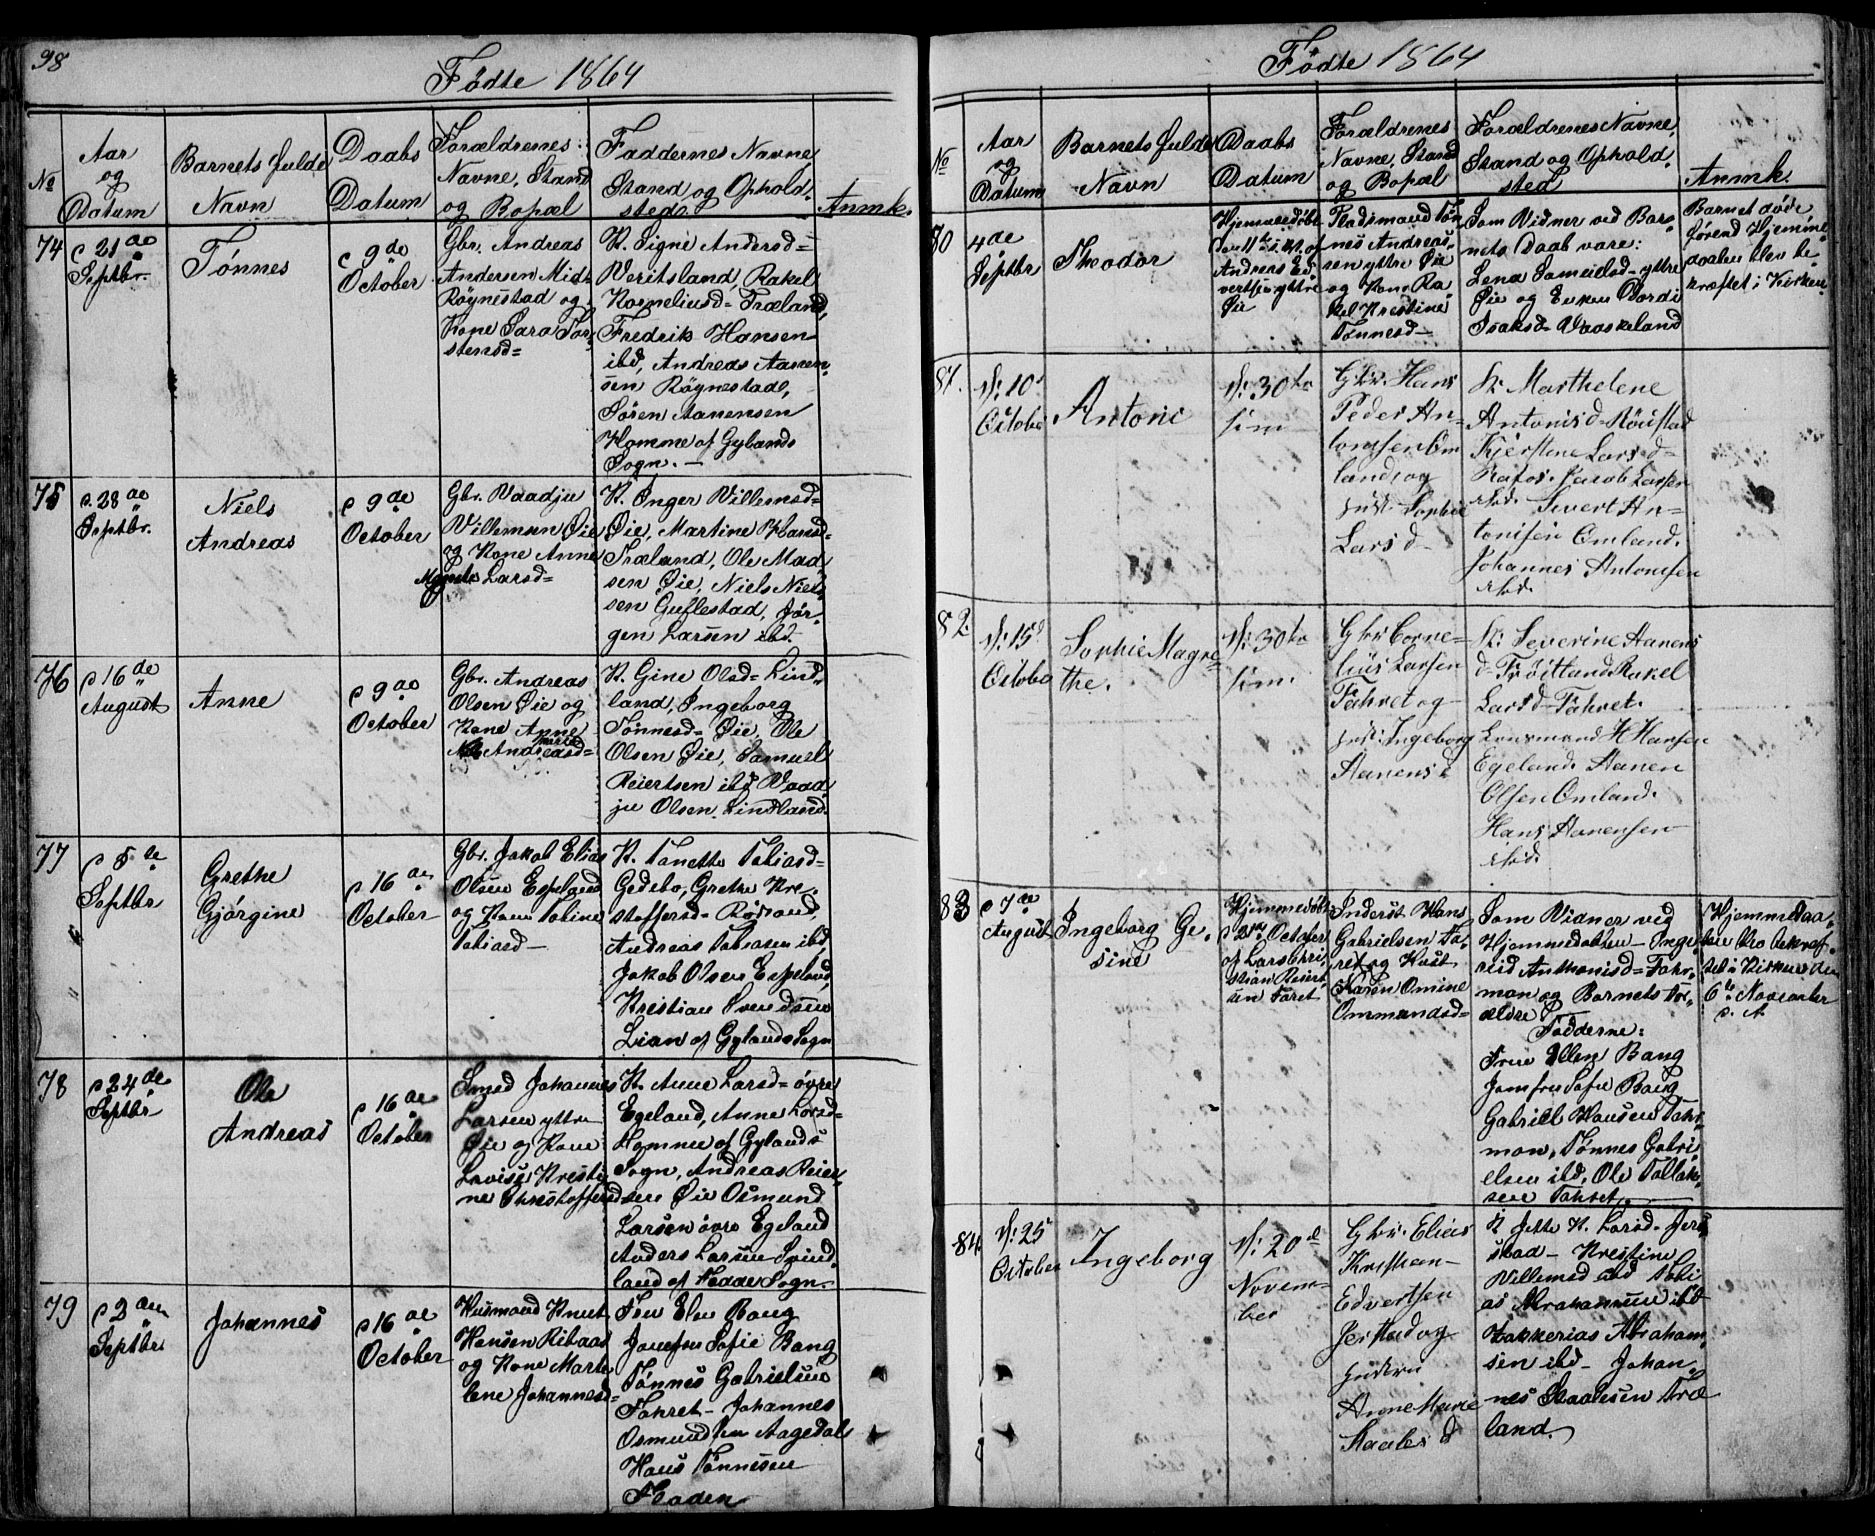 98
Fødte 1864
№
Aar
og
Datum
Barnets fulde
Navn
Daabs
Datum
Forældrenes
Navne, Stand
og Bopæl
Faddernes Navne
Stand og Ophold
sted
Anmk.
74
d 21de
Septbr.
Tønnes
d 9de
October
Gbr. Andreas
Andersen Midt
Røynestad og
Kone Sara Tor
stensd=
K. Signe Andersd=
Veritsland, Rakel
Korneliusd= Træland,
Fredrik Hansen
ibd, Andreas Aanen
sen Røynestad,
Søren Aanensen
Homme af Gylands
Sogn. —
75
d. 28de
Septbr.
Niels
Andreas
d 9de
October
Gbr. Vaadju
Villemsen Øie
og Kone Anne
Larsd=
K. Inger Villemsd=
Øie, Martine Hansd=
Træland, Ole Mad
sen Øie, Niels Niel
sen Guflestad, Jør
gen Larsen ibd.
76
d 16de
August
Anne
d 9de
October
Gbr. Andreas
Olsen Øie og
Kone Anne
Marie
Andreasd=
K. Gine Olsd= Lind
land, Ingeborg
Tønnesd= Øie, Ole
Olsen Øie, Samuel
Reiertsen ibd Vaad
ju Olsen Lindland.
77
d 5te
Septbr
Grethe
Gjørgine
d 16de
October
Gbr. Jakob Elias
Olsen Espeland
og Kone Tobine
Tobiasd—
K. Tanette Tobiasd=
Gedebo, Grethe Kri
stoffersd= Røisand,
Andreas Tobiasen ibd,
Jakob Olsen Espeland,
Kristian Svendsen
Lian af Gylands Sogn
78
d 24de
Septbr
Ole
Andreas
d 16de
October
Smed Johannes
Larsen yttre
Øie og Kone
Lovise Kresti
ne Christoffersd
K. Anne Larsd= øvre
Egeland, Anne Larsd=
Homme af Gylands
Sogn, Andreas Reier
sen Øie Osmund
Larsen øvre Egeland
Anders Larsen Svind
land af Fedde Sogn
79
d 2den
Septbr
Johannes
d 16de
October
Husmand Knut
Hansen Ribaas
og Kone Marte
lene Johannesd=
Fru Elen Bang
Jomfru Sofie Bang
Tønnes Gabrielsen
Fahret — Johannes
Osmundsen Aagedal
Hans Tønnesen
Fladen
Fødte 1864
№
Aar
og
Datum
Barnets fulde
Navn
Daabs
Datum
Forældrenes
Navne, Stand
og Bopæl
Forældrenes Navne,
Stand og Ophold
sted
Anmk.
80
4de
Septbr
Theodor
Hjemmedøbt
af
Andreas Ed
vertsen yttre
Øie
Pladsmand Tøn
nes Andreas
sen yttre Øie
og Kone Ra
kel Kristine
Tønnesd—
Som Vidner ved Bar
nets Daab vare:
Lena Sameielsd= yttre
Øie og Enken Bordi
Isaksd= Vaaskeland
Barnet døde
førend Hjemme
daaben blev be
kræftet i Kirken
81.
D: 10d
October
Antoni
D: 30te
sim
Gbr. Hans
Peder An
tonsen Om
land og
Hust. Sophie
Lars d—
K. Marthelene
Antonisd= Röistad
Kjerstene Lars d—
Rafos. Jacob Larsen
ibd. Sivert An
tonisen Omland.
Johannes Antonisen
ibd.
82.
D: 15d
October
Sophie Magre
the.
D: 30te
sim.
Gbr Corne
lius Larsen
Fahret og
Hust: Ingeborg
Aanens d
K: Severine Aanens
d= Fröitland Rakel
Larsd= Fahret.
Lensmand H Hansen
Egeland. Aanen
Olsen Omland.
Hans Aanensen
ibd.
83
d 7de
August
Ingeborg Ge
sine
Hjemmedøbt
October
af Lars Chri
stian Reiert
sen Faret
Inderst Hans
Gabrielsen Fa
ret og Hust
Karen Omine
Ommundsd=
Som Vidner ved
Hjemmedaaben Inge
reid Anthonisd= Fahr
man og Barnets For
ældre
Fadderne:
Frue Ellen Bang
Jomfru Sofie Bang
Gabriel Hansen Fahr
man, Tønnes Gabri
elsen ibd, Ole Tollak
sen Fahret
Hjemmedaa
ben blev bekræf
tet i Kirken den
6te November
s. A
84
D: 25
October
Ingeborg
D: 20d
Novem
ber
Gbr. Elias
Kristian
Edvertsen
Jerstad og
Anne Marie
Staales d
K Jette K. Larsd. Jer
stad — Krestine
Villemsd ibd Tobi
as Abrahamsen ibd
Zakkerias Abraham
sen ibd — Johan
nes Staalesen Træ
land.